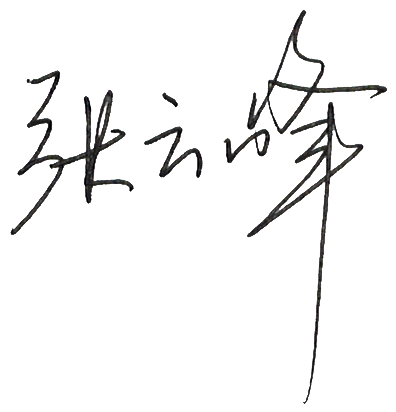 张云峰